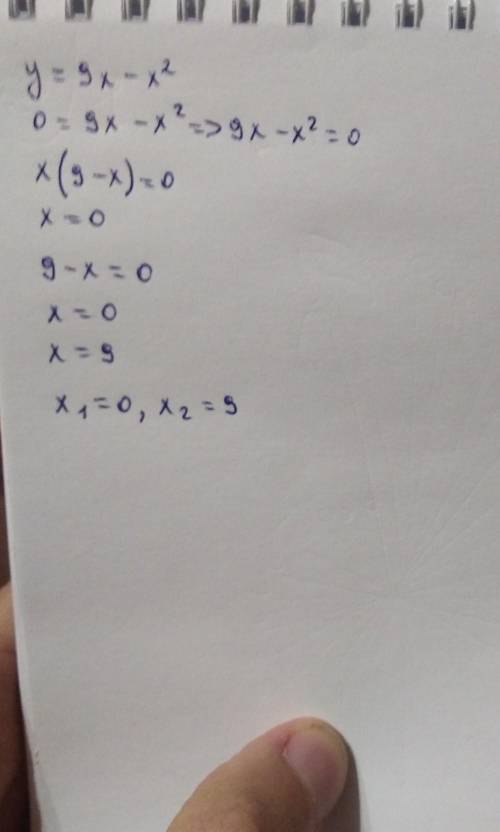 y = 9x - x²
0 = 9x - x² => 9x - x² = 0
x(9 - x) = 0
x = 0
9 - x = 0
x = 0
x = 9
x₁ = 0, x₂ = 9